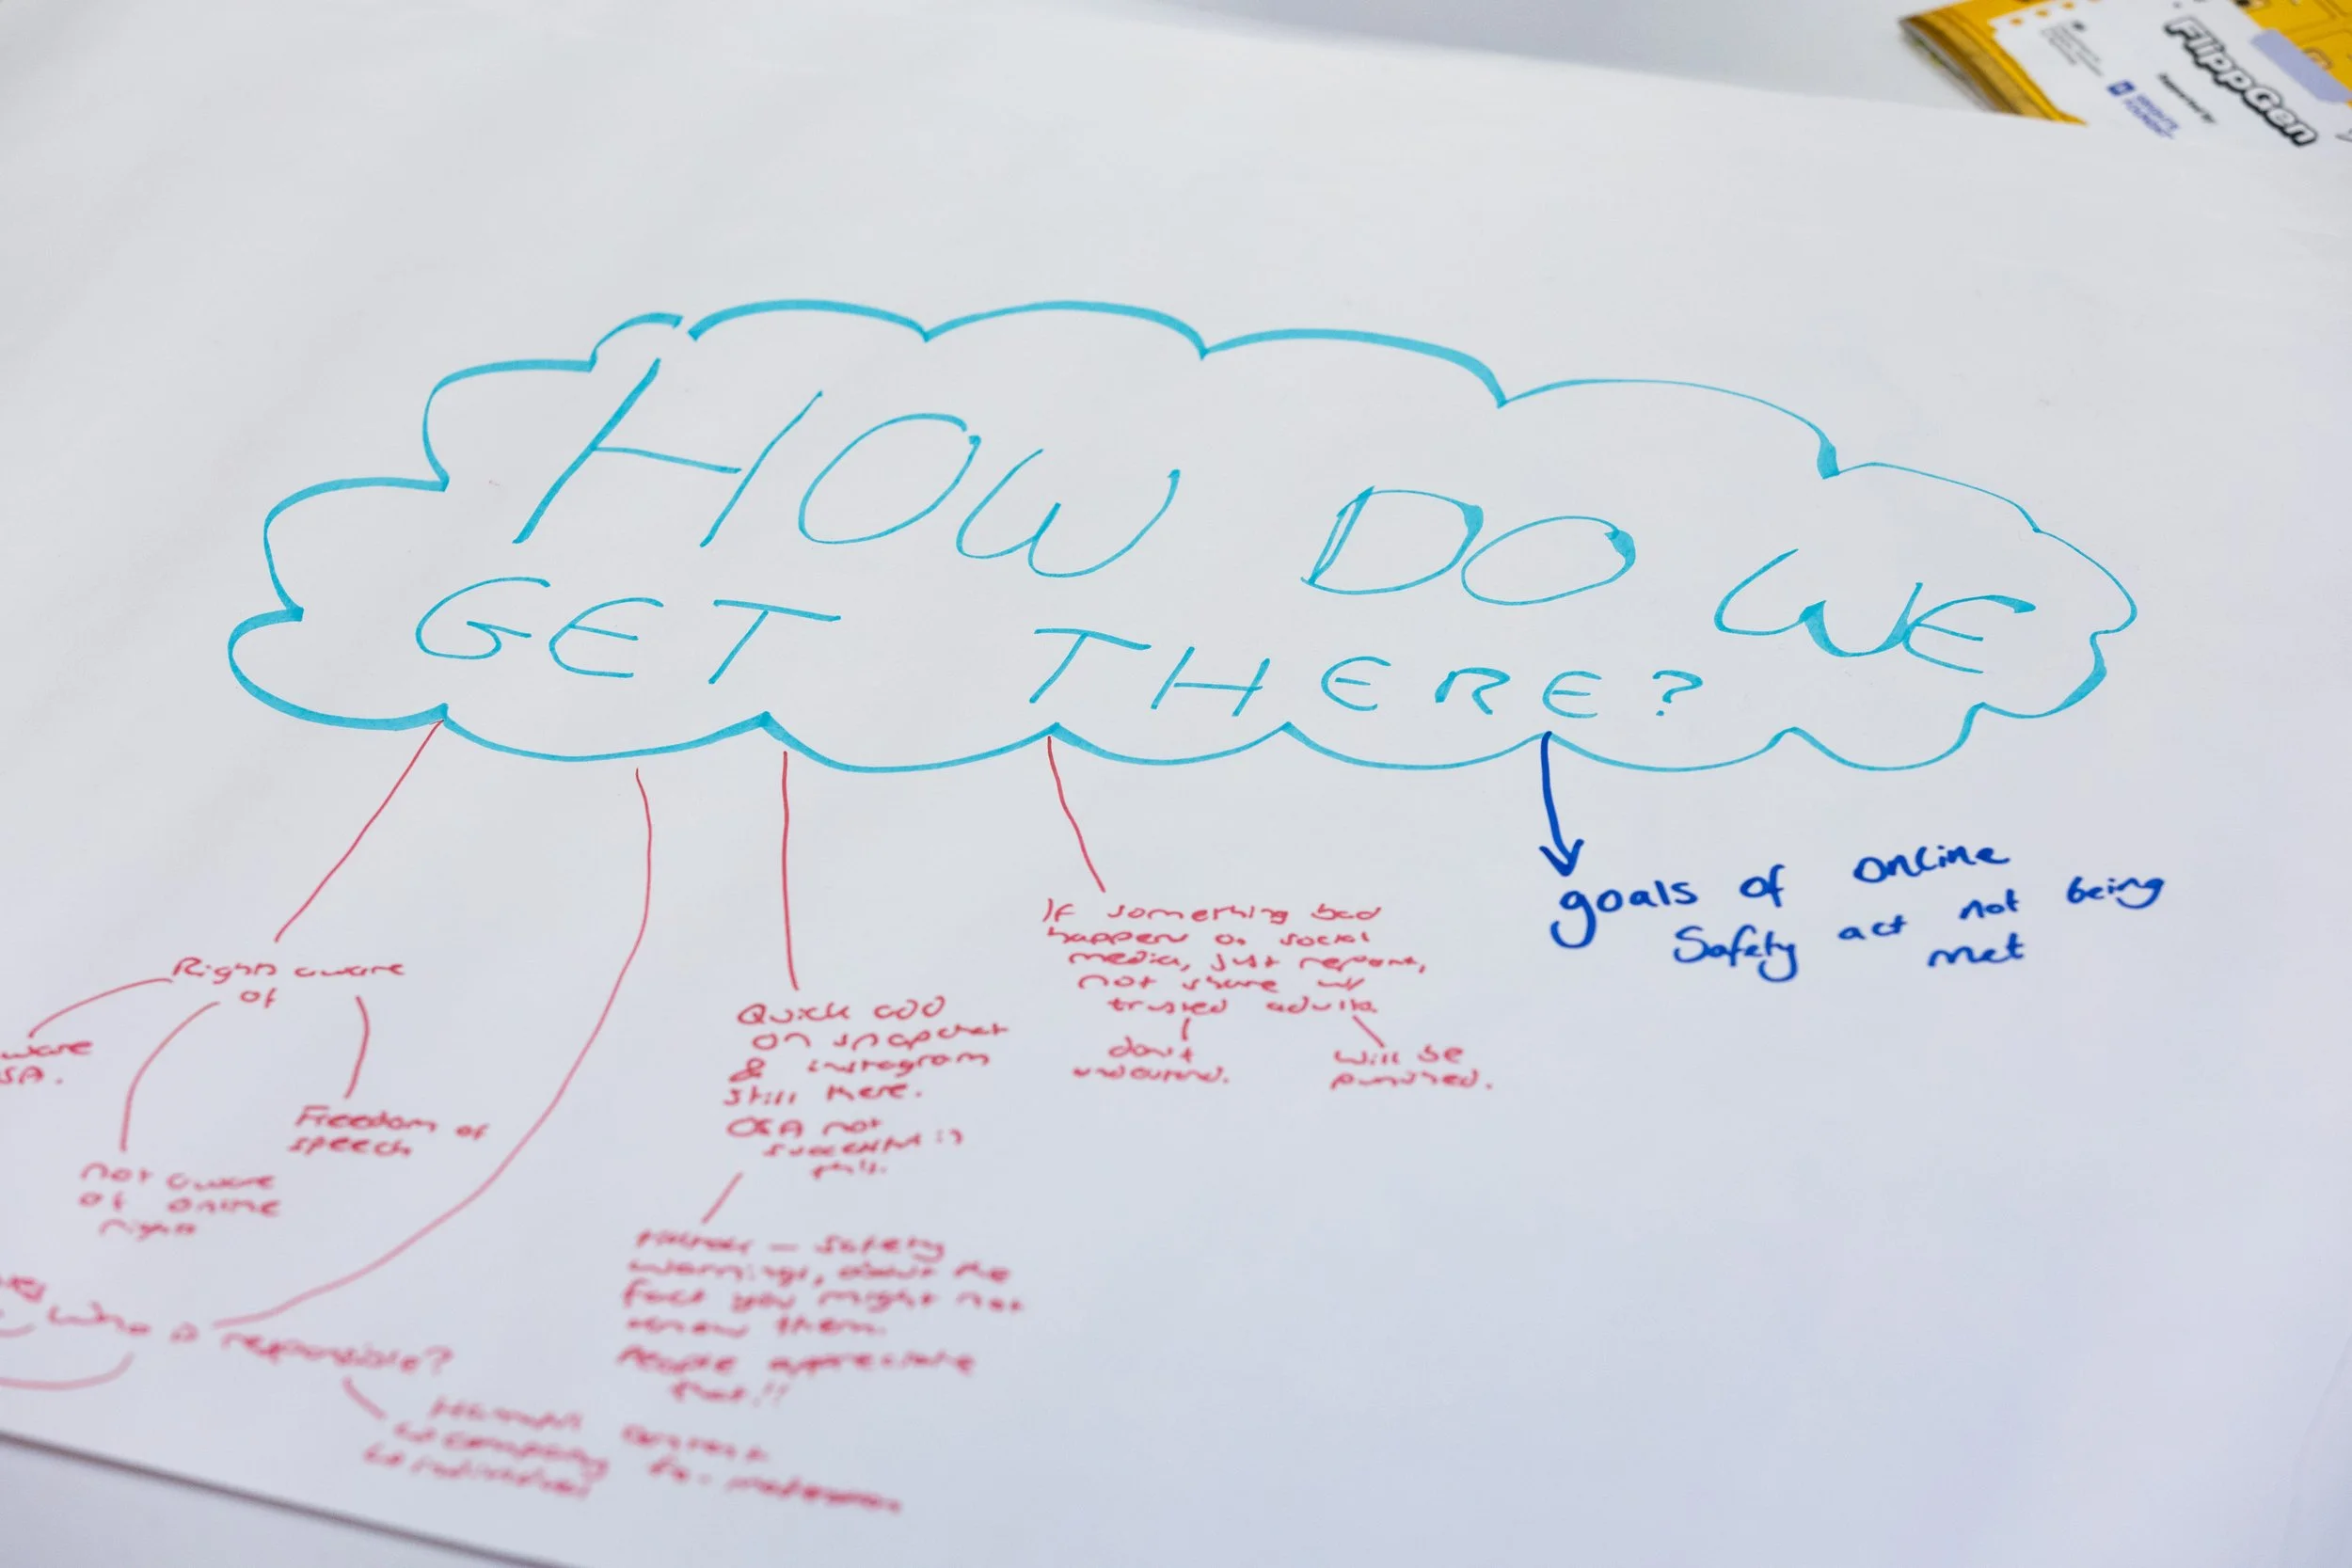 FlippGen
HOW DO WE
GET THERE?
goals of online
Safety act not being
met
If something bad
happens on social
media, just report,
not share w/
trusted adults.
don't
understand.
will be
punished.
Rights aware
of
ware
SA.
not aware
of online
rights
Freedom of
speech
Quick add
on snapchat
& instagram
still there.
OSA not
successful in
this.
safety
warnings, about the
fact you might not
know them.
People appreciate
that!!
Who is responsible?
↳ company
↳ individual